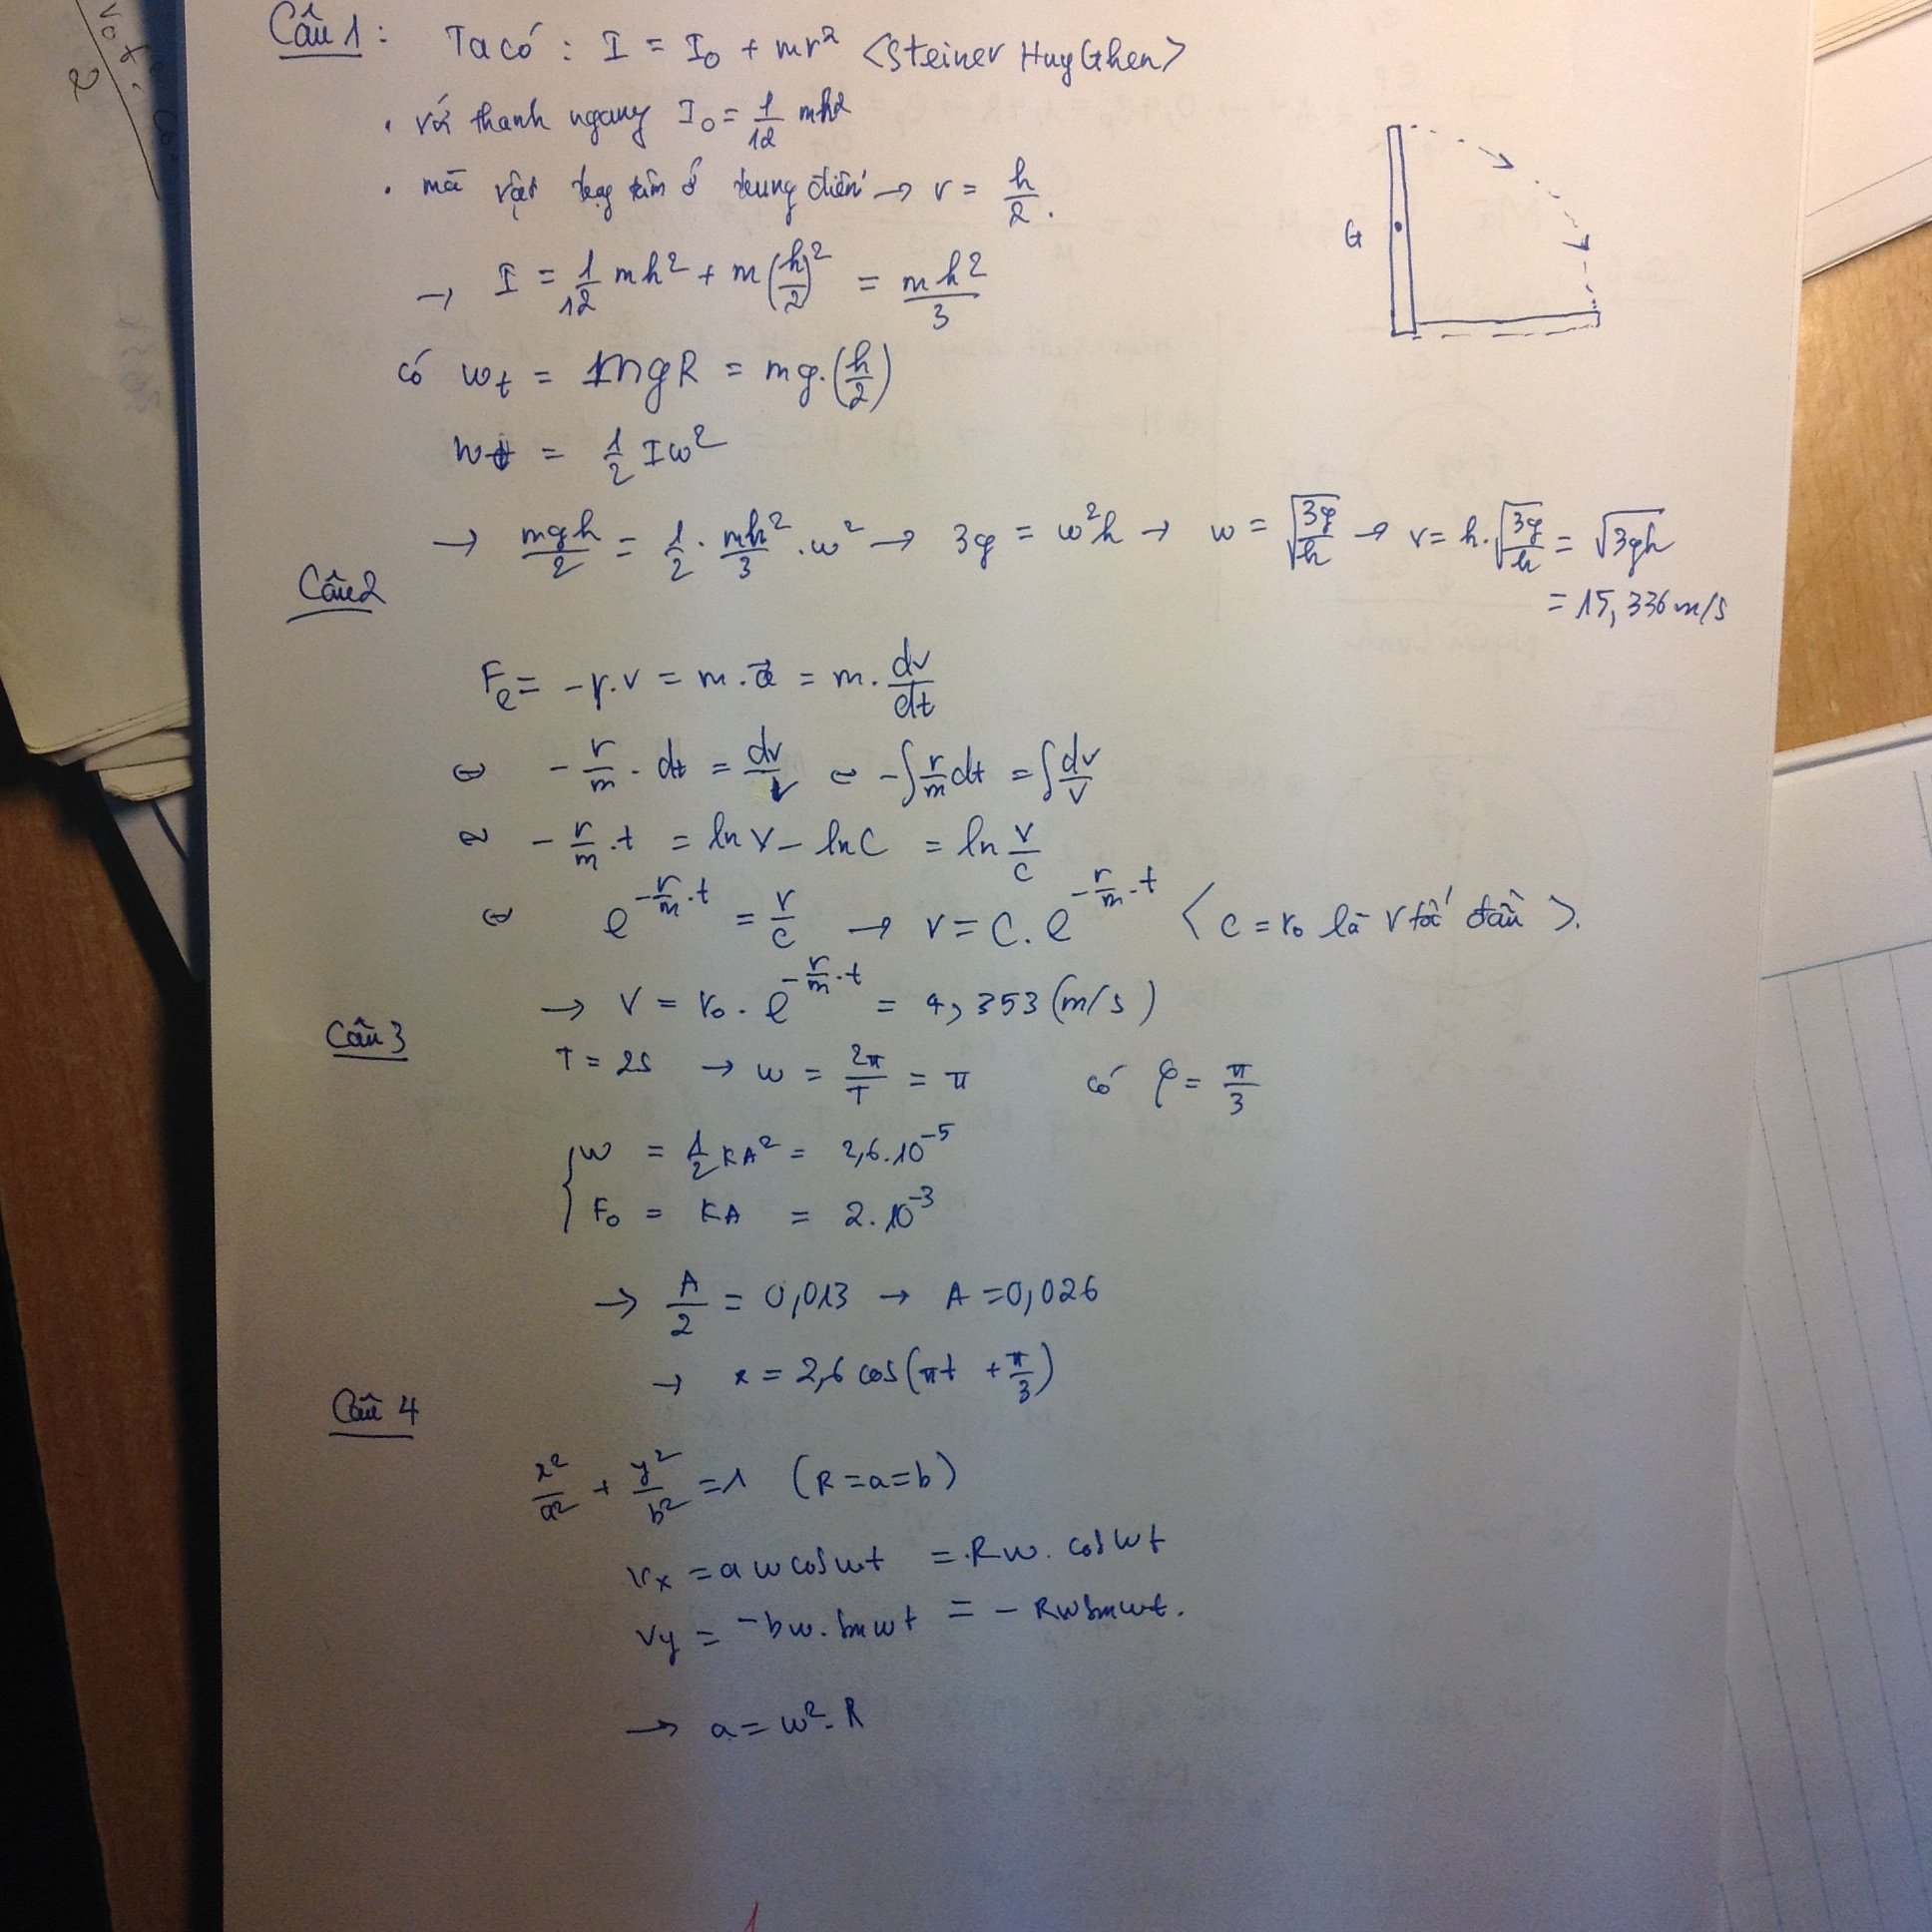 Câu 1 : Ta có : I = I₀ + mr² <Steiner HuyGhen>
• với thanh ngang I₀ = 1/12 mh²
• mà vật trọng tâm ở trung điểm → r = h/2.
→ I = 1/12 mh² + m(h/2)² = mh²/3
G
có Wt = mgR = mg.(h/2)
Wđ = 1/2 Iω²
→ mgh/2 = 1/2 . mh²/3 . ω² → 3g = ω²h → ω = √(3g/h) → v = h.√(3g/h) = √3gh
= 15,336 m/s
Câu 2
Fc = -r.v = m.a = m. dv/dt
⇔ - r/m . dt = dv/v ⇔ -∫ r/m dt = ∫ dv/v
⇔ - r/m .t = ln v - ln C = ln v/C
⇔ e^(-r/m .t) = v/C → v = C. e^(-r/m .t) < C = v₀ là v tốc đầu >.
→ v = v₀ . e^(-r/m .t) = 4,353 (m/s)
Câu 3
T = 2s → ω = 2π/T = π có φ = π/3
{ W = 1/2 KA² = 2,6.10⁻⁵
F₀ = KA = 2.10⁻³
→ A/2 = 0,013 → A = 0,026
→ x = 2,6 cos(πt + π/3)
Câu 4
x²/a² + y²/b² = 1 (R = a = b)
vx = a ω cos ωt = Rω. cos ωt
vy = -bω. sin ωt = - Rω sin ωt.
→ a = ω². R